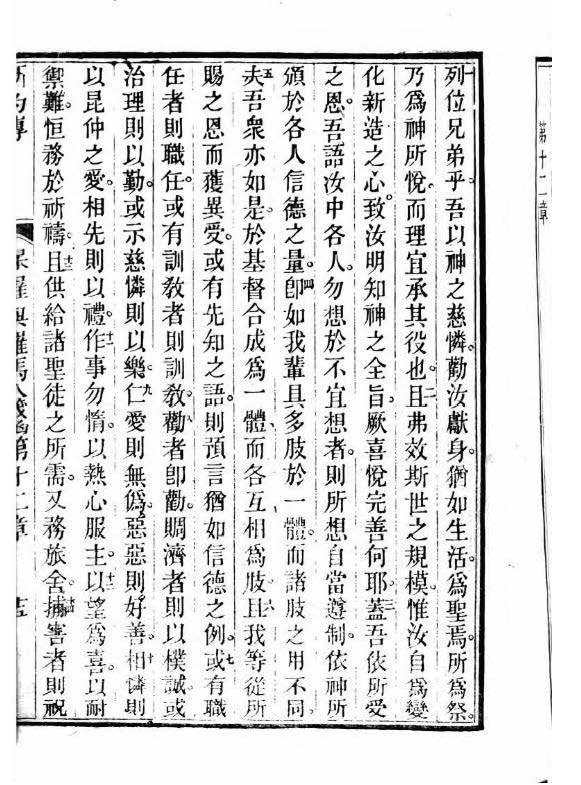 第十二章
列位兄弟乎。吾以神之慈憐勸汝獻身。猶如生活。爲聖焉。所爲祭。
乃爲神所悅。而理宜承其役也。二且弗效斯世之規模。惟汝自爲變
化新造之心。致汝明知神之全旨。厥喜悅完善何耶。三蓋吾依所愛
之恩。吾語汝中各人。勿想於不宜想者。則所想自當遵制。依神所
頒於各人信德之量。四卽如我輩具多肢於一體。而諸肢之用不同。
五夫吾衆亦如是。於基督合成爲一體。而各互相爲肢。六且我等從所
賜之恩而獲異受。或有先知之語。則預言猶如信德之例。七或有職
任者則職任。或有訓敎者則訓敎。八勸者卽勸。賙濟者則以樸誠。或
治理則以勤。或示慈憐則以樂。九仁愛則無僞。惡惡則好善。十相憐則
以昆仲之愛。相先則以禮。十一作事勿惰。以熱心服主。十二以望爲喜。以耐
禦難。恒務於祈禱。十三且供給諸聖徒之所需。又務旅舍。十四捕害者則祝
新約傳 保羅與羅馬人箋函第十二章